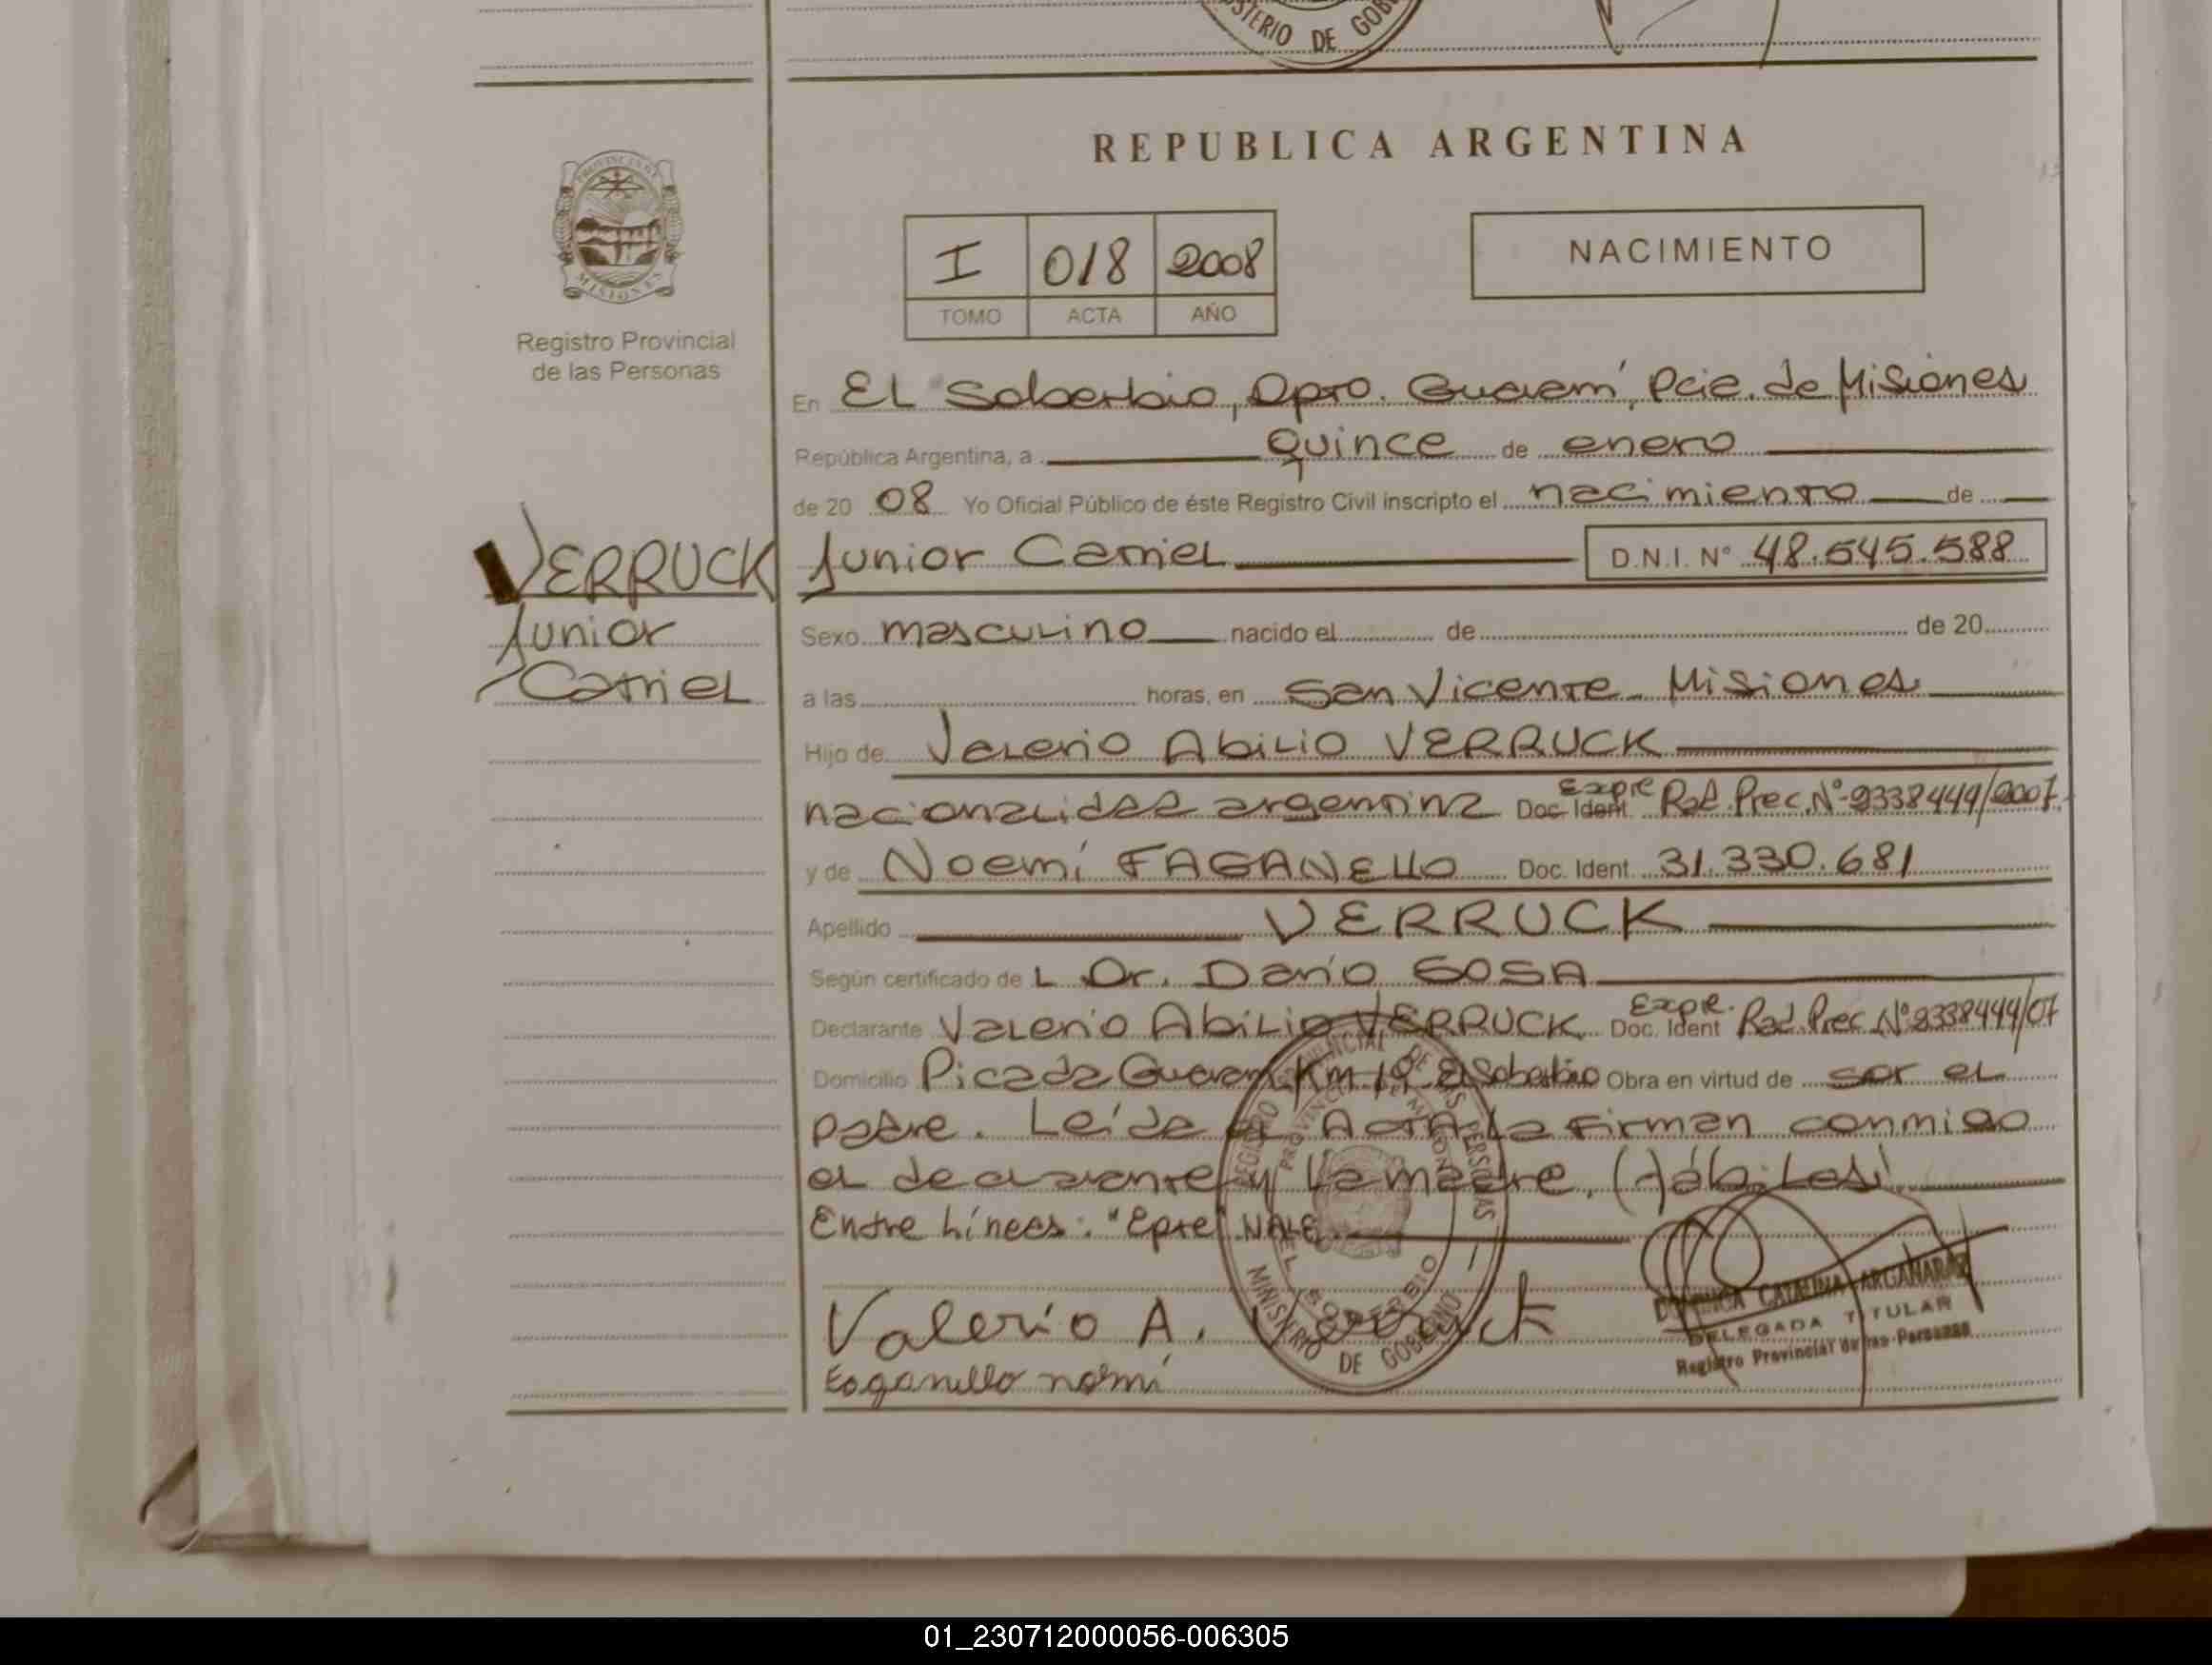 MINISTERIO DE GOB
REPUBLICA ARGENTINA
PROVINCIA DE
MISIONES
Registro Provincial
de las Personas
I 018 2008
TOMO ACTA AÑO
NACIMIENTO
En EL Soberbio, Dpto. Guaraní, Pcia. de Misiones
República Argentina, a quince de enero
de 20 08 Yo Oficial Público de éste Registro Civil inscripto el nacimiento de
VERRUCK
Junior
Camel
Junior Camel D.N.I. N° 48.545.588
Sexo masculino nacido el de de 20
a las horas, en San Vicente Misiones
Hijo de Valerio Abilio VERRUCK
nacionalidad argentina Doc. Ident. Expte Rad. Prec. N° 2338449/2007
y de Noemí FAGANELLO Doc. Ident. 31.330.681
Apellido VERRUCK
Según certificado de L Dr. Darío SOSA
Declarante Valerio Abilio VERRUCK Doc. Ident Expte. Rad. Prec. N° 2338449/07
Domicilio Picada Guaraní Km 19 El Soberbio Obra en virtud de ser el
padre. Leída el Acta la firman conmigo
el declarante y la madre. (Hábiles).
Entre Líneas: "Epte" VALE
Valerio A. Verruck
Faganello noemi
REGISTRO PROVINCIAL DE LAS PERSONAS
PROVINCIA DE MISIONES
EL SOBERBIO
MINISTERIO DE GOBIERNO
CATALINA ARGAÑARAZ
DELEGADA TITULAR
Registro Provincial de las Personas
01_230712000056-006305